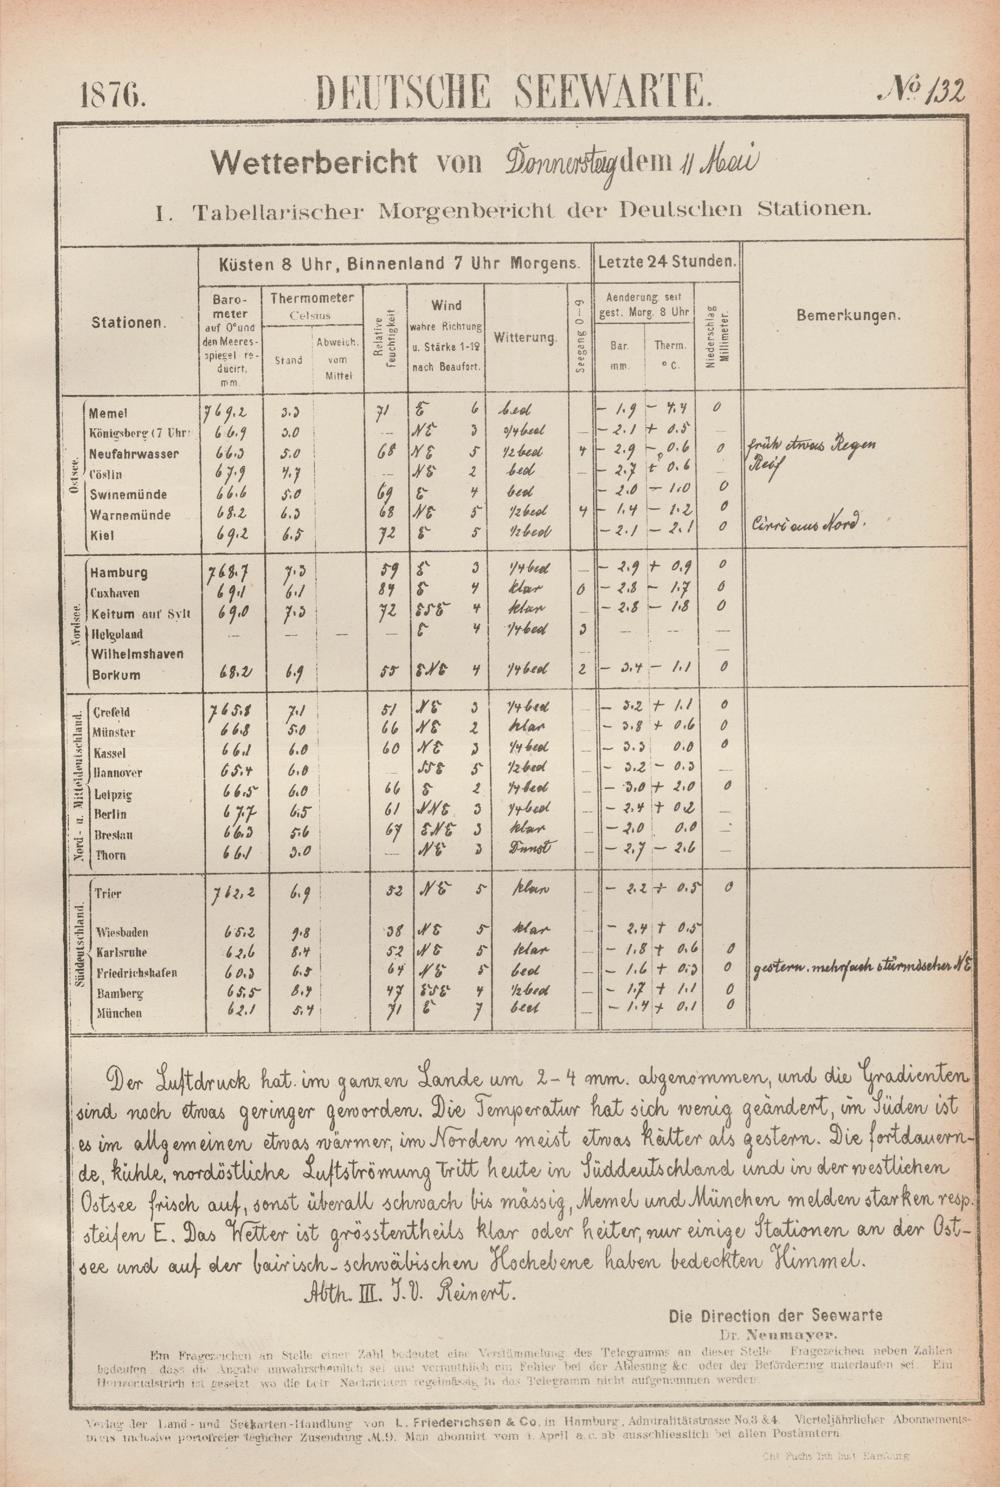 1876. DEUTSCHE SEEWARTE. No 132
Wetterbericht von Donnerstag dem 11 Mai
I. Tabellarischer Morgenbericht der Deutschen Stationen.
Stationen. Küsten 8 Uhr, Binnenland 7 Uhr Morgens. Letzte 24 Stunden. Bemerkungen.
Barometer auf 0° und den Meeresspiegel reducirt. mm. Thermometer Celsius Stand Abweich. vom Mittel Relative Feuchtigkeit Wind wahre Richtung u. Stärke 1-12 nach Beaufort. Witterung. Seegang 0-9 Aenderung seit gest. Morg. 8 Uhr Bar. mm. Therm. °C. Niederschlag Millimeter.
Ostsee.
Memel 769.2 3.3 71 E 6 bed - 1.9 - 4.4 0
Königsberg (7 Uhr) 66.9 3.0 — NE 3 3/4 bed — - 2.1 + 0.5 —
Neufahrwasser 66.3 5.0 68 NE 5 1/2 bed 4 - 2.9 - 0.6 0 früh etwas Regen
Cöslin 67.9 4.7 — NE 2 bed — - 2.7 + 0.6 — Reif
Swinemünde 66.6 5.0 69 E 4 bed - 2.0 - 1.0 0
Warnemünde 68.2 6.3 68 NE 5 1/2 bed 4 - 1.4 - 1.2 0 Cirri aus Nord.
Kiel 69.2 6.5 72 E 5 1/2 bed — - 2.1 - 2.1 0
Nordsee.
Hamburg 768.7 7.3 59 E 3 1/4 bed — - 2.9 + 0.9 0
Cuxhaven 69.1 6.1 84 E 4 klar 0 - 2.8 - 1.7 0
Keitum auf Sylt 69.0 7.3 72 ESE 4 klar — - 2.8 - 1.8 0
Helgoland — — — — E 4 1/4 bed 3 — — —
Wilhelmshaven —
Borkum 68.2 6.9 55 ENE 4 1/4 bed 2 - 3.4 - 1.1 0
Nord- u. Mitteldeutschland.
Crefeld 765.8 7.1 51 NE 3 1/4 bed — - 3.2 + 1.1 0
Münster 66.8 5.0 66 NE 2 klar — - 3.8 + 0.6 0
Kassel 66.1 6.0 60 NE 3 1/4 bed — - 3.3 0.0 0
Hannover 65.4 6.0 — SSE 5 1/2 bed — - 3.2 - 0.3 —
Leipzig 66.5 6.0 66 E 2 1/4 bed — - 3.0 + 2.0 0
Berlin 67.7 6.5 61 NNE 3 1/4 bed — - 2.4 + 0.2 —
Breslau 66.3 5.6 67 ENE 3 klar — - 2.0 0.0 —
Thorn 66.1 3.0 — NE 3 Dunst — - 2.7 - 2.6 —
Süddeutschland.
Trier 762.2 6.9 52 NE 5 klar — - 2.2 + 0.5 0
Wiesbaden 65.2 9.8 38 NE 5 klar — - 2.4 + 0.5
Karlsruhe 62.6 8.4 52 NE 5 klar — - 1.8 + 0.6 0
Friedrichshafen 60.3 6.5 64 NE 5 bed — - 1.6 + 0.3 0 gestern mehrfach stürmischer NE
Bamberg 65.5 8.4 47 ESE 4 1/2 bed — - 1.7 + 1.1 0
München 62.1 5.4 71 E 7 bed — - 1.4 + 0.1 0
Der Luftdruck hat im ganzen Lande um 2–4 mm. abgenommen, und die Gradienten
sind noch etwas geringer geworden. Die Temperatur hat sich wenig geändert, im Süden ist
es im allgemeinen etwas wärmer, im Norden meist etwas kälter als gestern. Die fortdauern-
de, kühle, nordöstliche Luftströmung tritt heute in Süddeutschland und in der westlichen
Ostsee frisch auf, sonst überall schwach bis mässig, Memel und München melden starken resp.
steifen E. Das Wetter ist grösstentheils klar oder heiter, nur einige Stationen an der Ost-
see und auf der bairisch-schwäbischen Hochebene haben bedeckten Himmel.
Abth. III. I.V. Reinert.
Die Direction der Seewarte
Dr. Neumayer.
Ein Fragezeichen an Stelle einer Zahl bedeutet eine Verstümmelung des Telegramms an dieser Stelle Fragezeichen neben Zahlen
bedeuten, dass die Angabe unwahrscheinlich sei und vermuthlich ein Fehler bei der Ablesung &c. oder der Beförderung unterlaufen sei. Ein
Horizontalstrich ist gesetzt, wo die betr. Nachrichten regelmässig in das Telegramm nicht aufgenommen werden.
Verlag der Land- und Seekarten-Handlung von L. Friederichsen & Co. in Hamburg, Admiralitätstrasse No. 3 & 4. Vierteljährlicher Abonnements-
preis inclusive portofreier täglicher Zusendung M. 9. Man abonnirt vom 1. April a. c. ab ausschliesslich bei allen Postämtern.
Fuchs lith. Inst. Hamburg